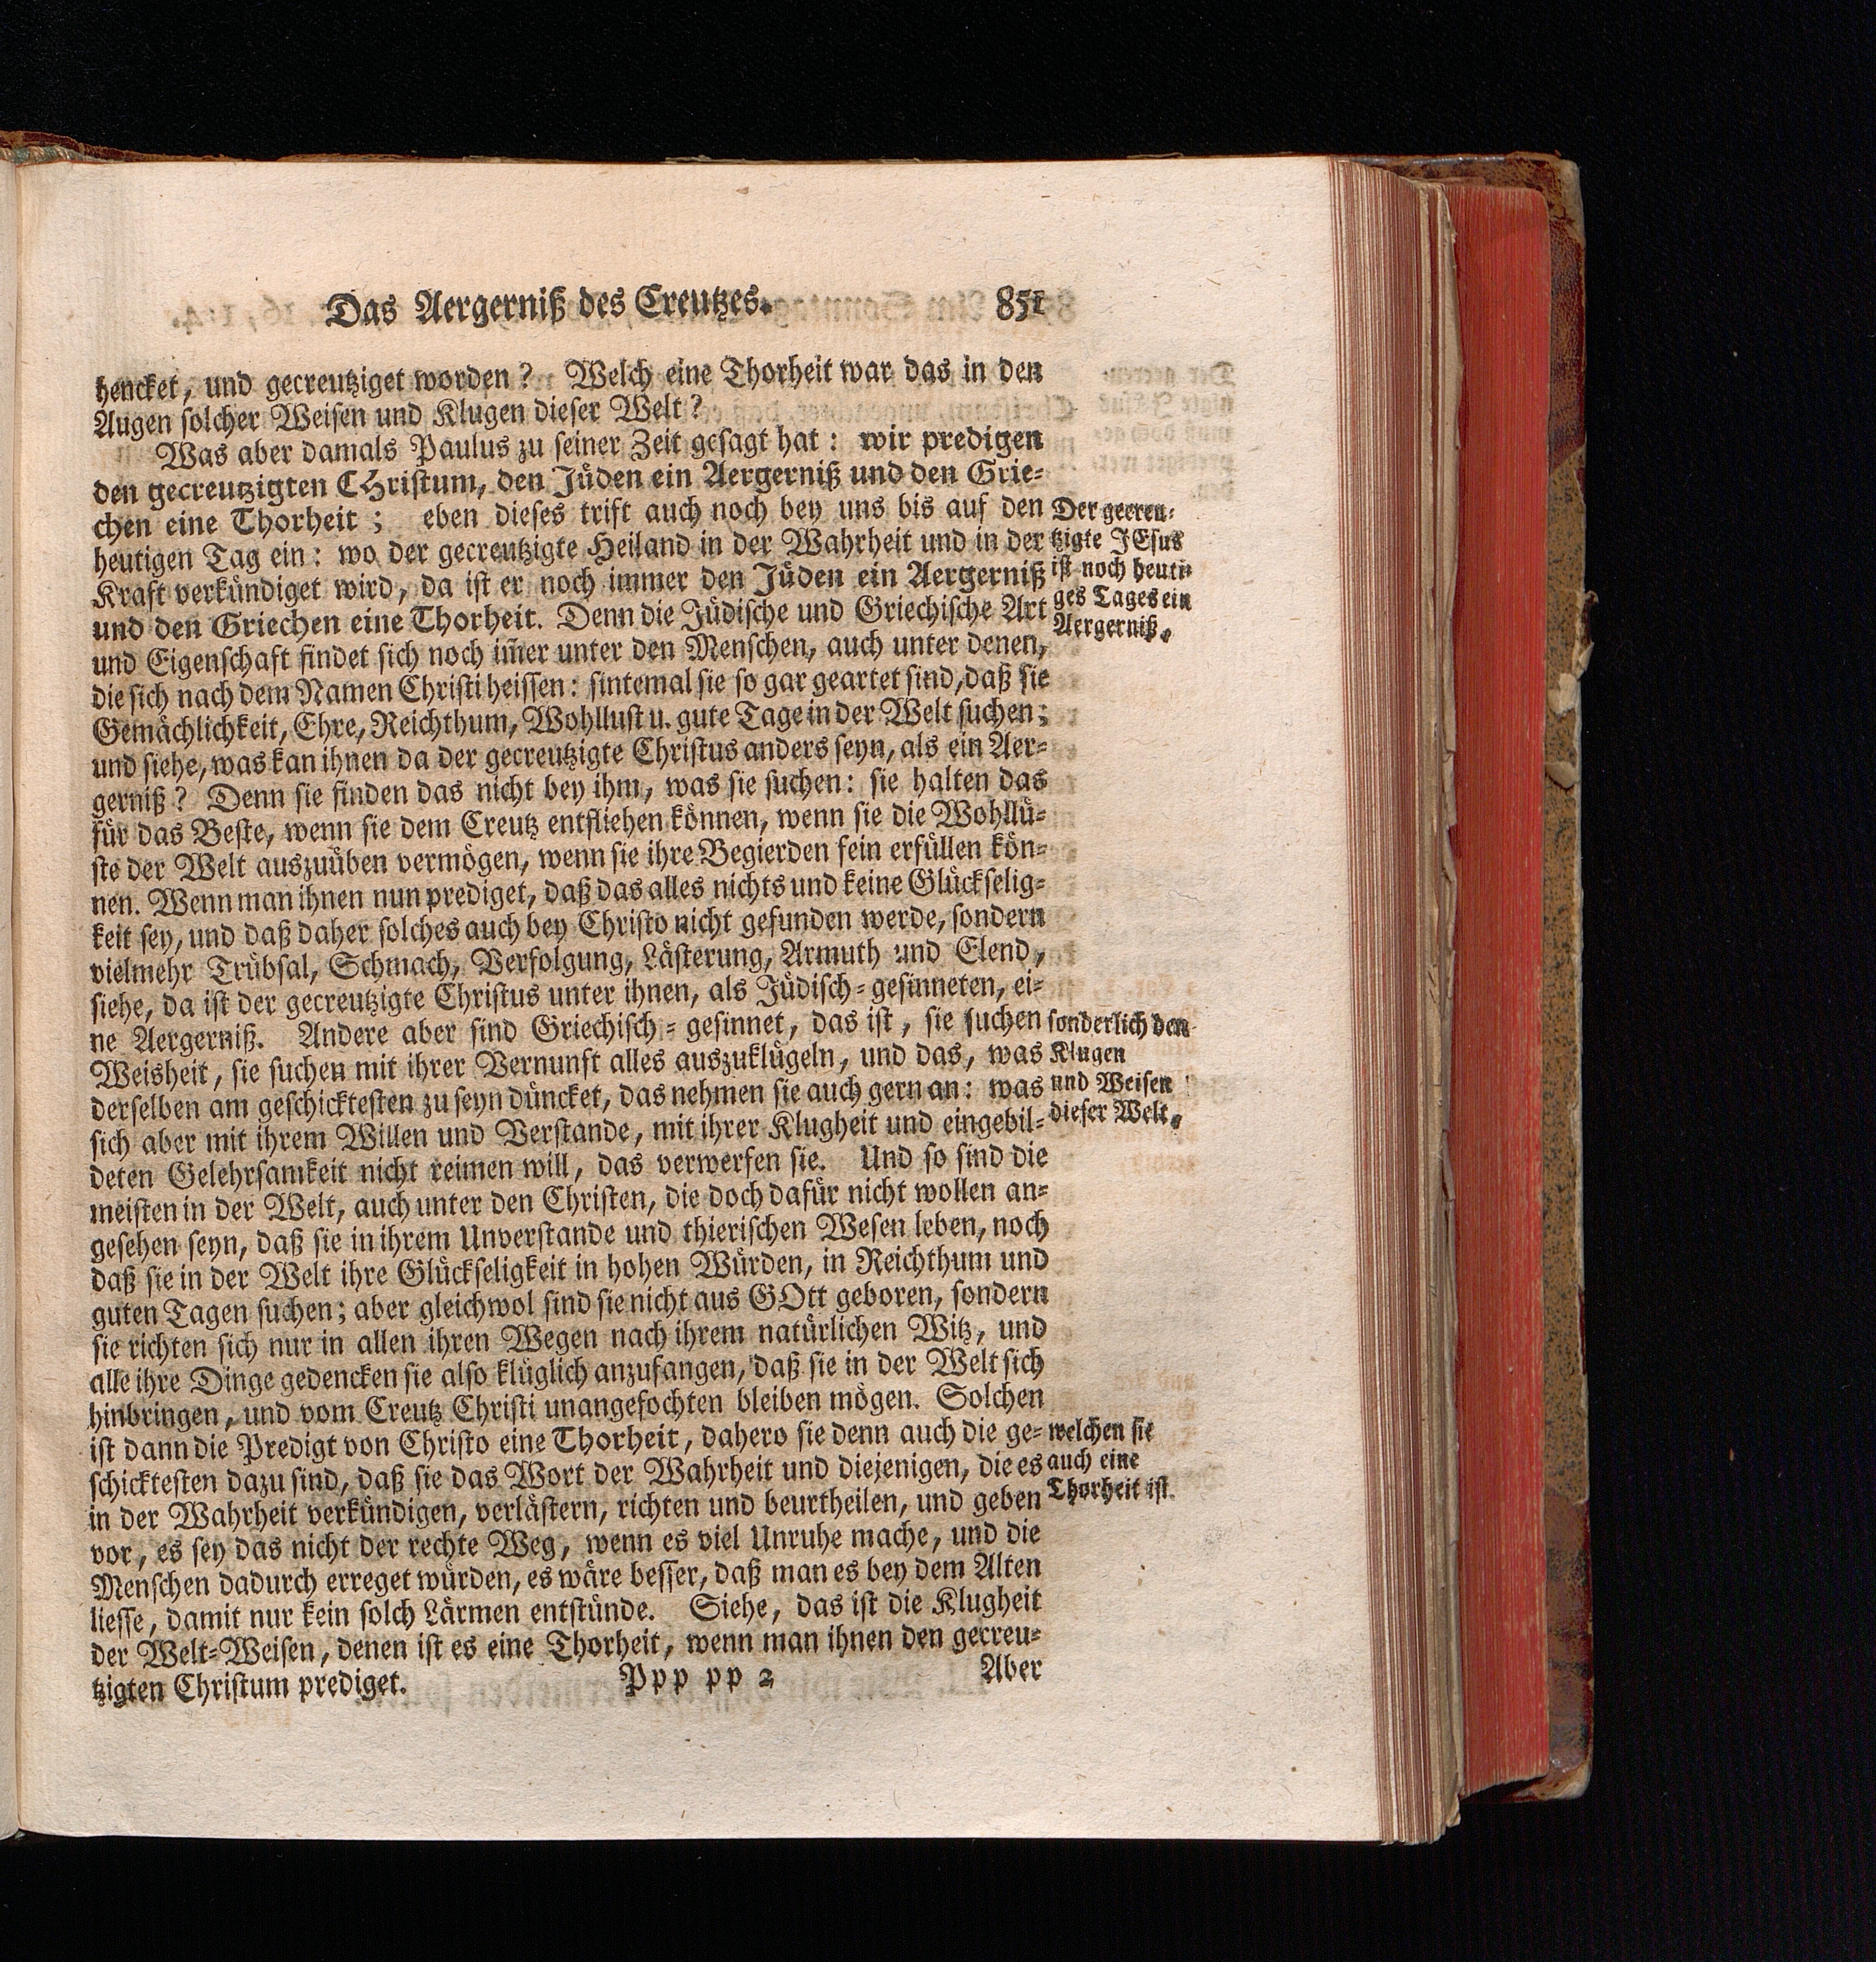 Das Aergerniß des Creutzes. 851
hencket, und gecreutziget worden? Welch eine Thorheit war das in den
Augen solcher Weisen und Klugen dieser Welt?
Was aber damals Paulus zu seiner Zeit gesagt hat: wir predigen
den gecreutzigten CHristum, den Jüden ein Aergerniß und den Grie-
chen eine Thorheit; eben dieses trift auch noch bey uns bis auf den
heutigen Tag ein: wo der gecreutzigte Heiland in der Wahrheit und in der
Kraft verkündiget wird, da ist er noch immer den Jüden ein Aergerniß
und den Griechen eine Thorheit. Denn die Jüdische und Griechische Art
und Eigenschaft findet sich noch im̃er unter den Menschen, auch unter denen,
die sich nach dem Namen Christi heissen: sintemal sie so gar geartet sind, daß sie
Gemächlichkeit, Ehre, Reichthum, Wohllust u. gute Tage in der Welt suchen;
und siehe, was kan ihnen da der gecreutzigte Christus anders seyn, als ein Aer-
gerniß? Denn sie finden das nicht bey ihm, was sie suchen: sie halten das
für das Beste, wenn sie dem Creutz entfliehen können, wenn sie die Wohllü-
ste der Welt auszuüben vermögen, wenn sie ihre Begierden fein erfüllen kön-
nen. Wenn man ihnen nun prediget, daß das alles nichts und keine Glückselig-
keit sey, und daß daher solches auch bey Christo nicht gefunden werde, sondern
vielmehr Trübsal, Schmach, Verfolgung, Lästerung, Armuth und Elend,
siehe, da ist der gecreutzigte Christus unter ihnen, als Jüdisch-gesinneten, ei-
ne Aergerniß. Andere aber sind Griechisch-gesinnet, das ist, sie suchen
Weisheit, sie suchen mit ihrer Vernunft alles auszuklügeln, und das, was
derselben am geschicktesten zu seyn düncket, das nehmen sie auch gern an: was
sich aber mit ihrem Willen und Verstande, mit ihrer Klugheit und eingebil-
deten Gelehrsamkeit nicht reimen will, das verwerfen sie. Und so sind die
meisten in der Welt, auch unter den Christen, die doch dafür nicht wollen an-
gesehen seyn, daß sie in ihrem Unverstande und thierischen Wesen leben, noch
daß sie in der Welt ihre Glückseligkeit in hohen Würden, in Reichthum und
guten Tagen suchen; aber gleichwol sind sie nicht aus GOtt geboren, sondern
sie richten sich nur in allen ihren Wegen nach ihrem natürlichen Witz, und
alle ihre Dinge gedencken sie also klüglich anzufangen, daß sie in der Welt sich
hinbringen, und vom Creutz Christi unangefochten bleiben mögen. Solchen
ist dann die Predigt von Christo eine Thorheit, dahero sie denn auch die ge-
schicktesten dazu sind, daß sie das Wort der Wahrheit und diejenigen, die es
in der Wahrheit verkündigen, verlästern, richten und beurtheilen, und geben
vor, es sey das nicht der rechte Weg, wenn es viel Unruhe mache, und die
Menschen dadurch erreget würden, es wäre besser, daß man es bey dem Alten
liesse, damit nur kein solch Lärmen entstünde. Siehe, das ist die Klugheit
der Welt-Weisen, denen ist es eine Thorheit, wenn man ihnen den gecreu-
tzigten Christum prediget. Ppp pp 2 Aber
Der gecreu-
tzigte JEsus
ist noch heuti-
ges Tages ein
Aergerniß,
sonderlich den
Klugen
und Weisen
dieser Welt,
welchen sie
auch eine
Thorheit ist.